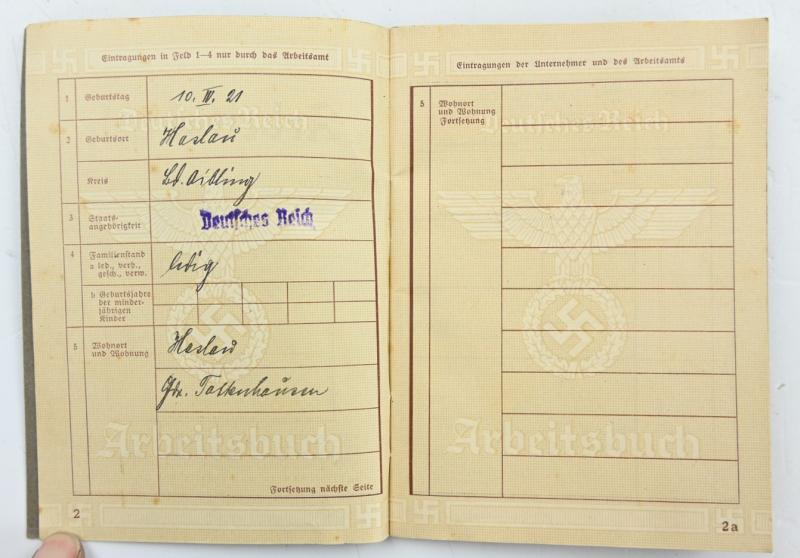 Eintragungen in Feld 1—4 nur durch das Arbeitsamt
1 Geburtstag 10. IV. 21
2 Geburtsort Haslau
Kreis Bd. Aibling
3 Staats-
angehörigkeit Deutsches Reich
4 Familienstand
a led., verh.,
gesch., verw. ledig
b Geburtsjahre
der minder-
jährigen
Kinder
5 Wohnort
und Wohnung Haslau
Falkenhausen
Fortsetzung nächste Seite
Deutsches Reich
Arbeitsbuch
2
Eintragungen der Unternehmer und des Arbeitsamts
5 Wohnort
und Wohnung
Fortsetzung
Deutsches Reich
Arbeitsbuch
2a